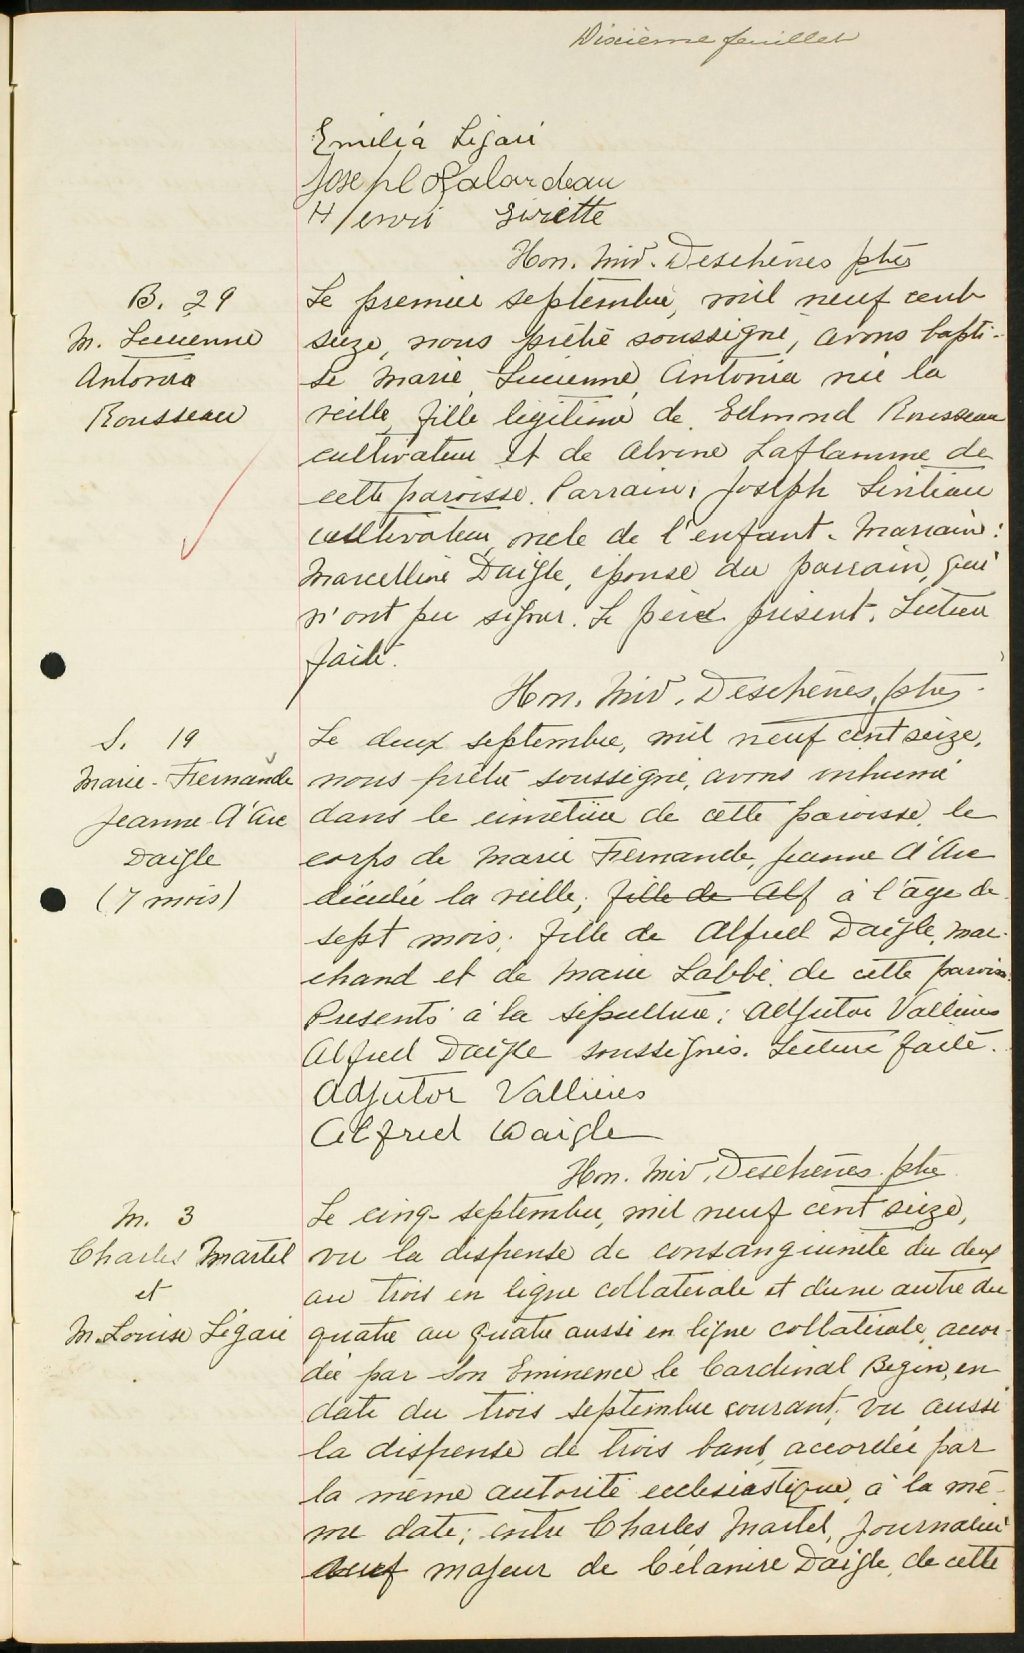 Dixième feuillet
Emilia Légaré
Joseph Galardeau
Henri Giriette
Hon. Mivl. Deschênes ptre
B. 29
M. Lucienne
Antonia
Rousseau
Le premier septembre, mil neuf cent
seize, nous prêtre soussigné, avons bapti-
sé Marie, Lucienne, Antonia née la
veille, fille légitime de Edmond Rousseau
cultivateur et de Alvine Laflamme de
cette paroisse. Parrain: Joseph
cultivateur oncle de l'enfant. Marraine:
Marcelline Daigle, épouse du parrain, qui
n'ont pu signer. Le père présent. Lecture
faite.
Hon. Mivl. Deschênes, ptre
S. 19
Marie-Fernande
Jeanne d'Arc
Daigle
(7 mois)
Le deux septembre, mil neuf cent seize,
nous prêtre soussigné, avons inhumé
dans le cimetière de cette paroisse, le
corps de Marie Fernande, Jeanne d'Arc
décédée la veille, fille de Alf à l'âge de
sept mois; fille de Alfred Daigle, mar-
chand et de Marie Labbé de cette paroisse.
Présents à la sépulture: Adjutor Vallières
Alfred Daigle soussignés. Lecture faite.
Adjutor Vallières
Alfred Daigle
Hon. Mivl. Deschênes ptre
M. 3
Charles Martel
et
M. Louise Légaré
Le cinq septembre, mil neuf cent seize,
vu la dispense de consanguinité du deux
au trois en ligne collatérale et d'une autre du
quatre au quatre aussi en ligne collatérale, accor-
dée par Son Eminence le Cardinal Bégin, en
date du trois septembre courant; vu aussi
la dispense de trois bans, accordée par
la même autorité ecclésiastique, à la mê-
me date; entre Charles Martel, journalier
veuf majeur de Célanire Daigle, de cette